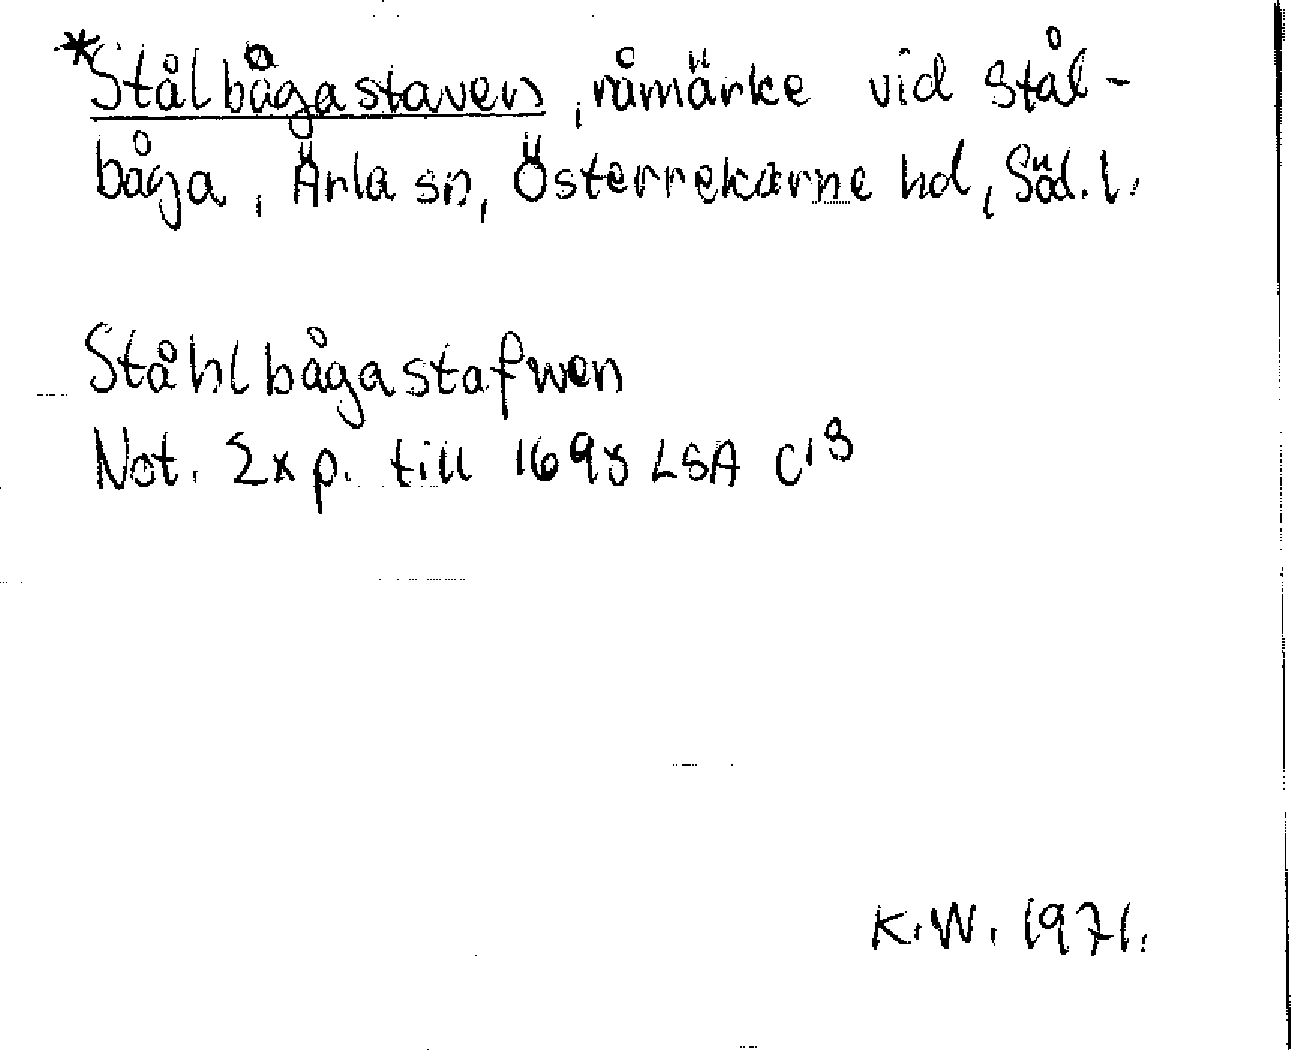 *Stålbågastaven, råmärke vid Stål-
båga, Ärla sn, Österrekarne hd, Söd. l.
Ståhlbågastafwen
Not. Exp. till 1698 LSA C¹8
K.W. 1971.